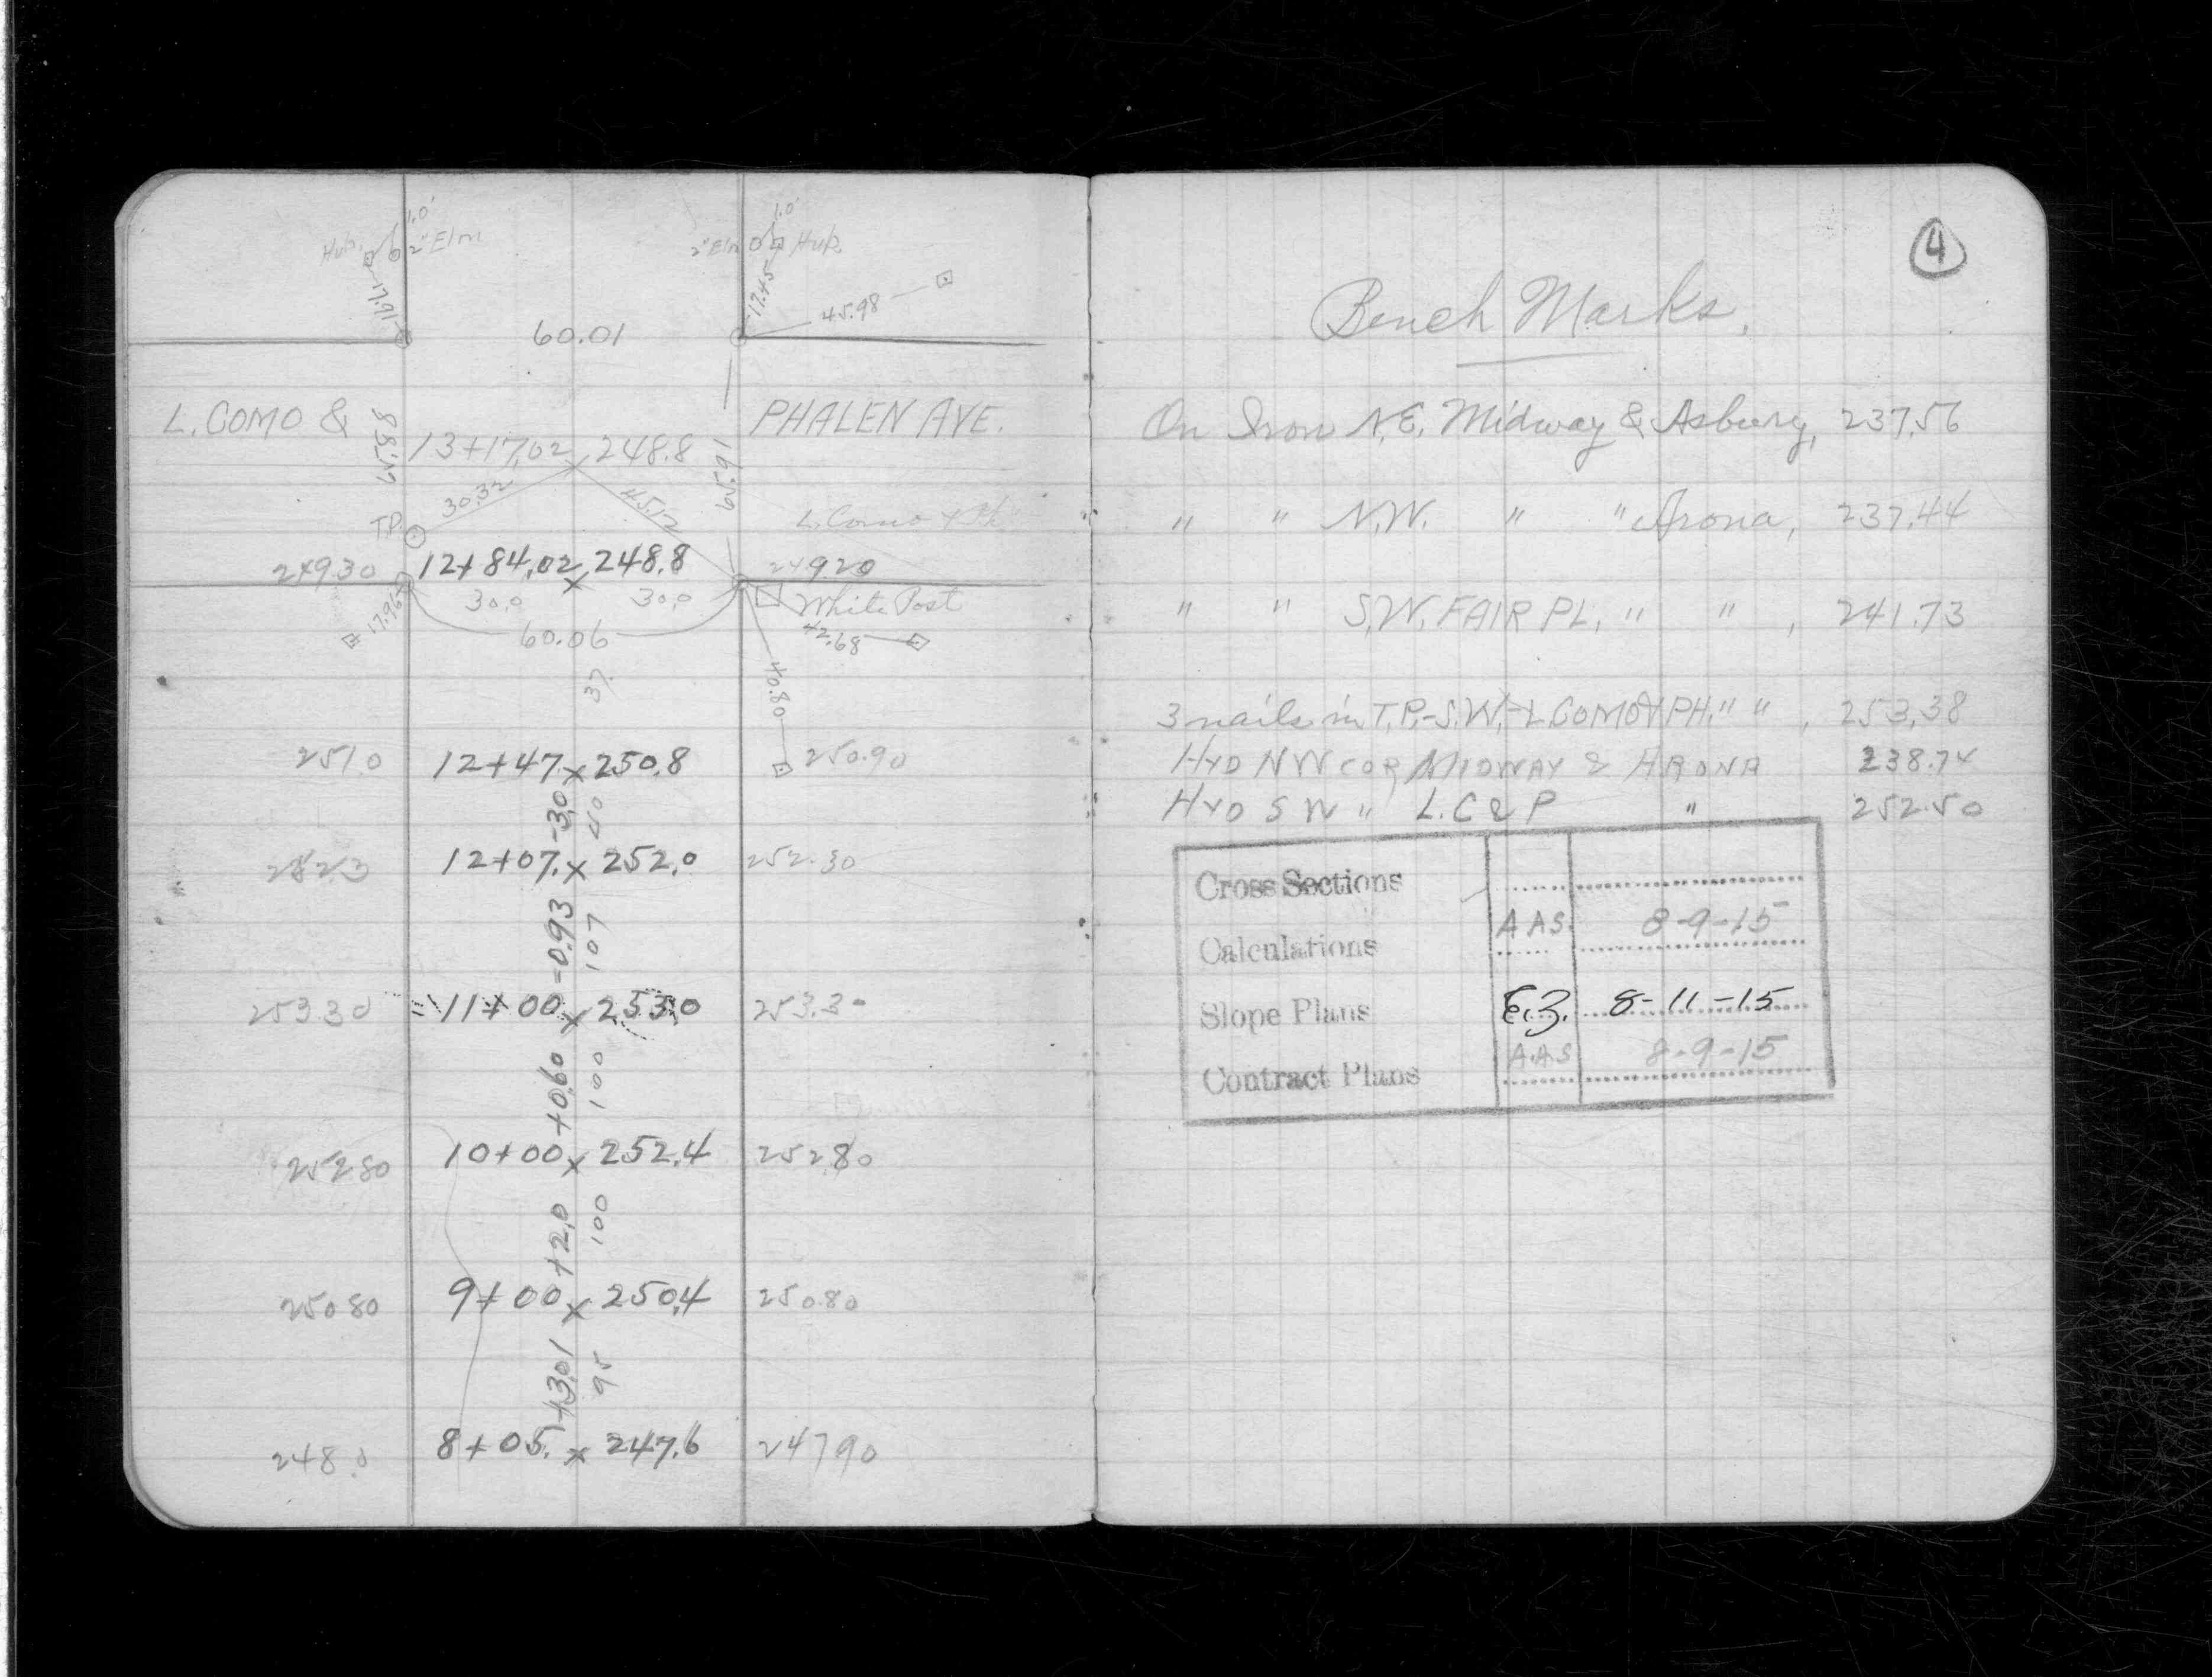 1.0' 1.0'
Hub. 2" Elm 2" Elm Hub.
17.91 17.45 45.98
60.01
L. COMO & PHALEN AVE.
13+17.02 248.8 65.91
30.32 45.12
T.P. L. Como & Ph
249.30 12+84.02 x 248.8 249.20
17.96 30.0 30.0 White Post
60.06 42.68
37. 40.80
251.0 12+47. x 250.8 250.90
-3.0 40
252.3 12+07. x 252.0 252.30
-0.93 107
253.30 11+00 x 253.0 253.30
+0.60 100
252.80 10+00 x 252.4 252.80
+2.0 100
250.80 9+00 x 250.4 250.80
+3.01 95
248.0 8+05. x 247.6 247.90
4
Bench Marks.
On Iron N.E. Midway & Asbury, 237.56
" " N.W. " " Arona, 237.44
" " S.W. FAIR PL, " " , 241.73
3 nails in T.P.-S.W.-L COMO & PH. " " , 253.38
HYD NW COR MIDWAY & ARONA 238.74
HYD S W " L.C & P " 252.50
Cross Sections
Calculations A A S. 8-9-15
Slope Plans E.Z. 8-11-15
Contract Plans A.A.S 8-9-15